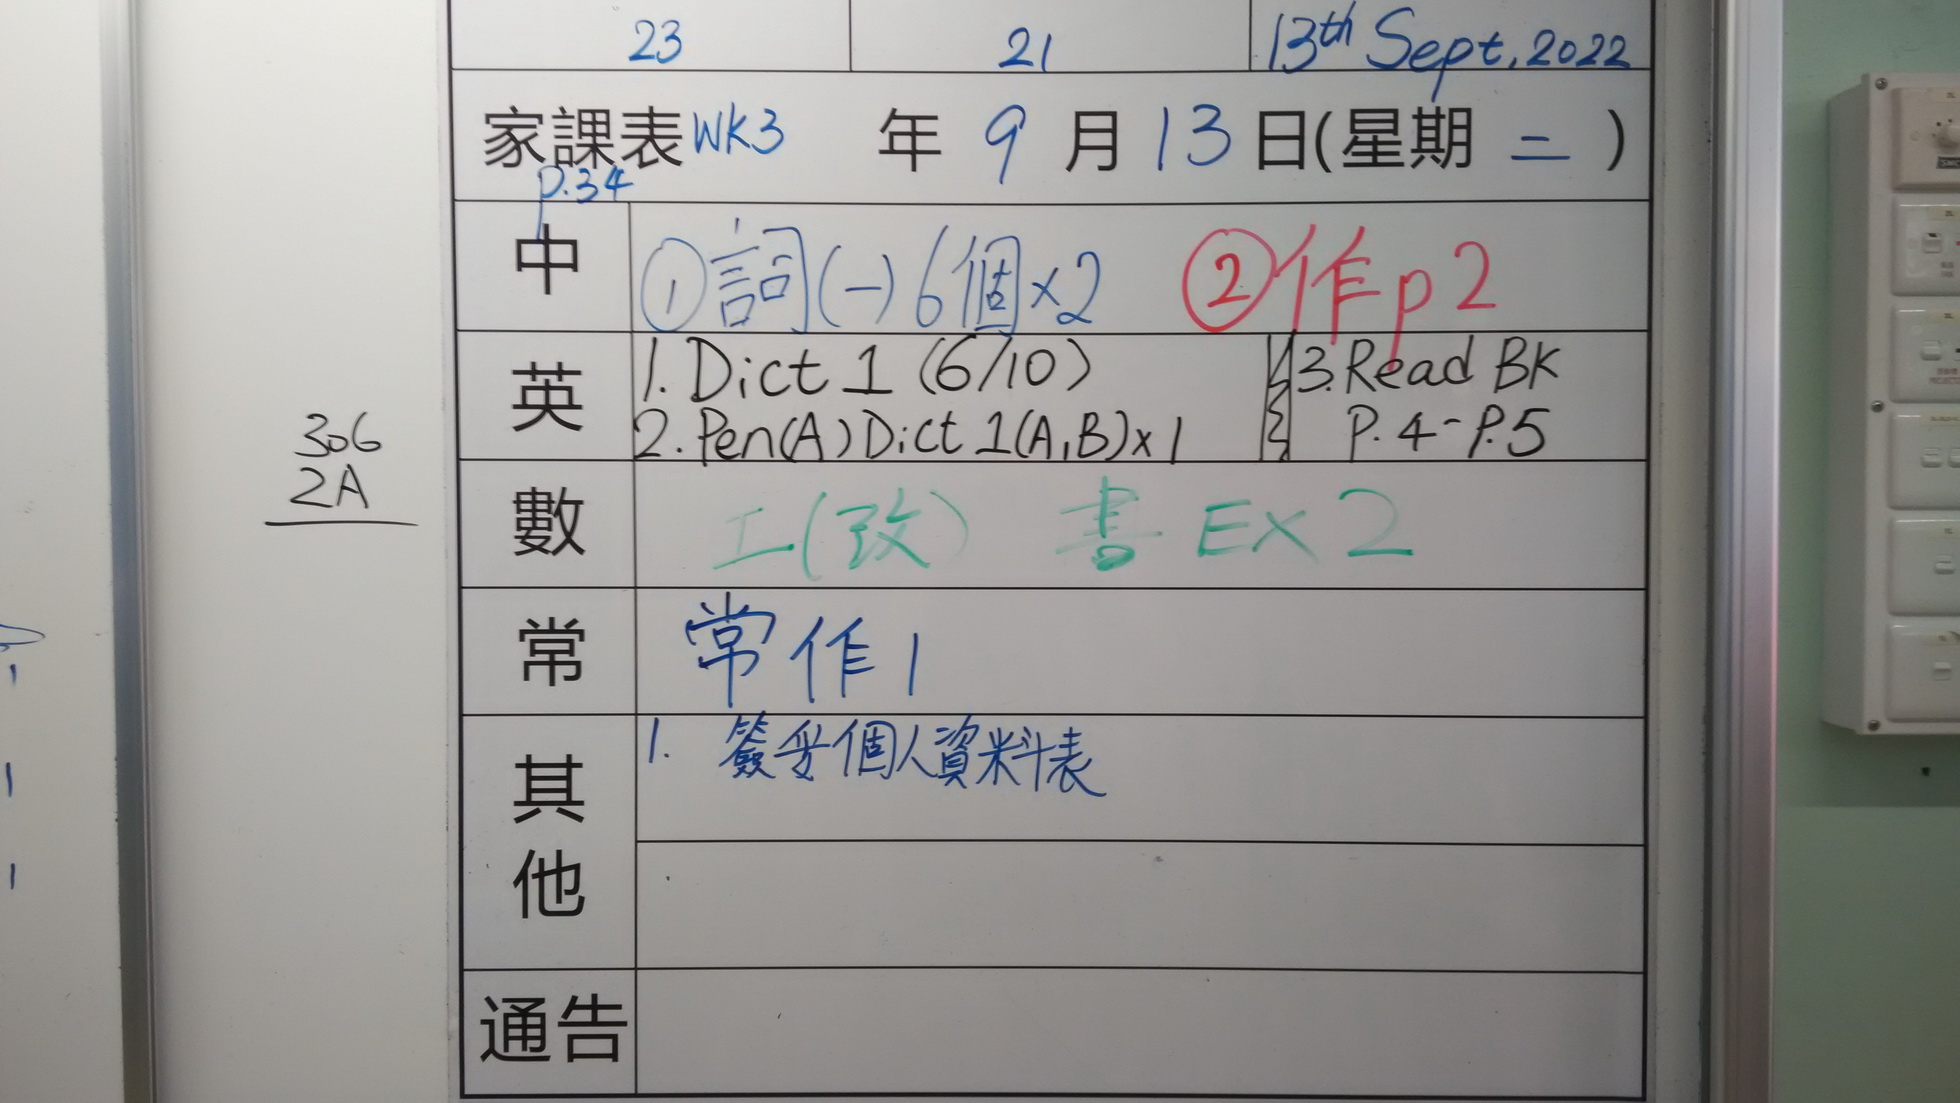 23 21 13th Sept, 2022
家課表 WK3 年 9 月 13 日(星期 二 )
p.34
中 ①詞(一)6個×2 ②作p2
英 1. Dict 1 (6/10) 3. Read BK
2. Pen(A) Dict 1(A,B)×1 P.4-P.5
306
2A
數 工(改) 書 EX 2
常 常作1
其他 1. 簽妥個人資料表
通告